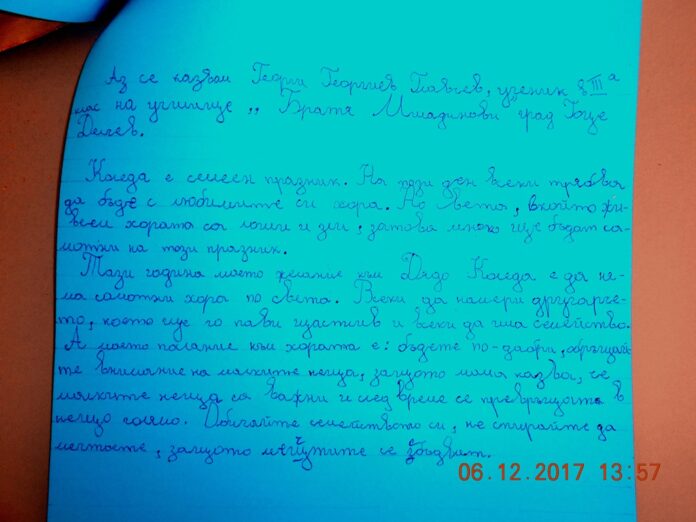 Аз се казвам Георги Георгиев Главчев, ученик в III а
клас на училище „ Братя Миладинови град Гоце
Делчев.
Коледа е семеен празник. На този ден всеки трябва
да бъде с любимите си хора. Но света, в който жи-
веем хората са лоши и зли, затова много ще бъдат са-
мотни на този празник.
Тази година моето желание към Дядо Коледа е да ня-
ма самотни хора по света. Всеки да намери другарче-
то, което ще го нави щастлив и всеки да има семейство.
А моето послание към хората е: бъдете по-добри, обръщай-
те внимание на малките неща, защото мама казва, че
малките неща са важни и след време се превръщат в
нещо голямо. Обичайте семейството си, не спирайте да
мечтаете, защото мечтите се сбъдват.
06.12.2017 13:57